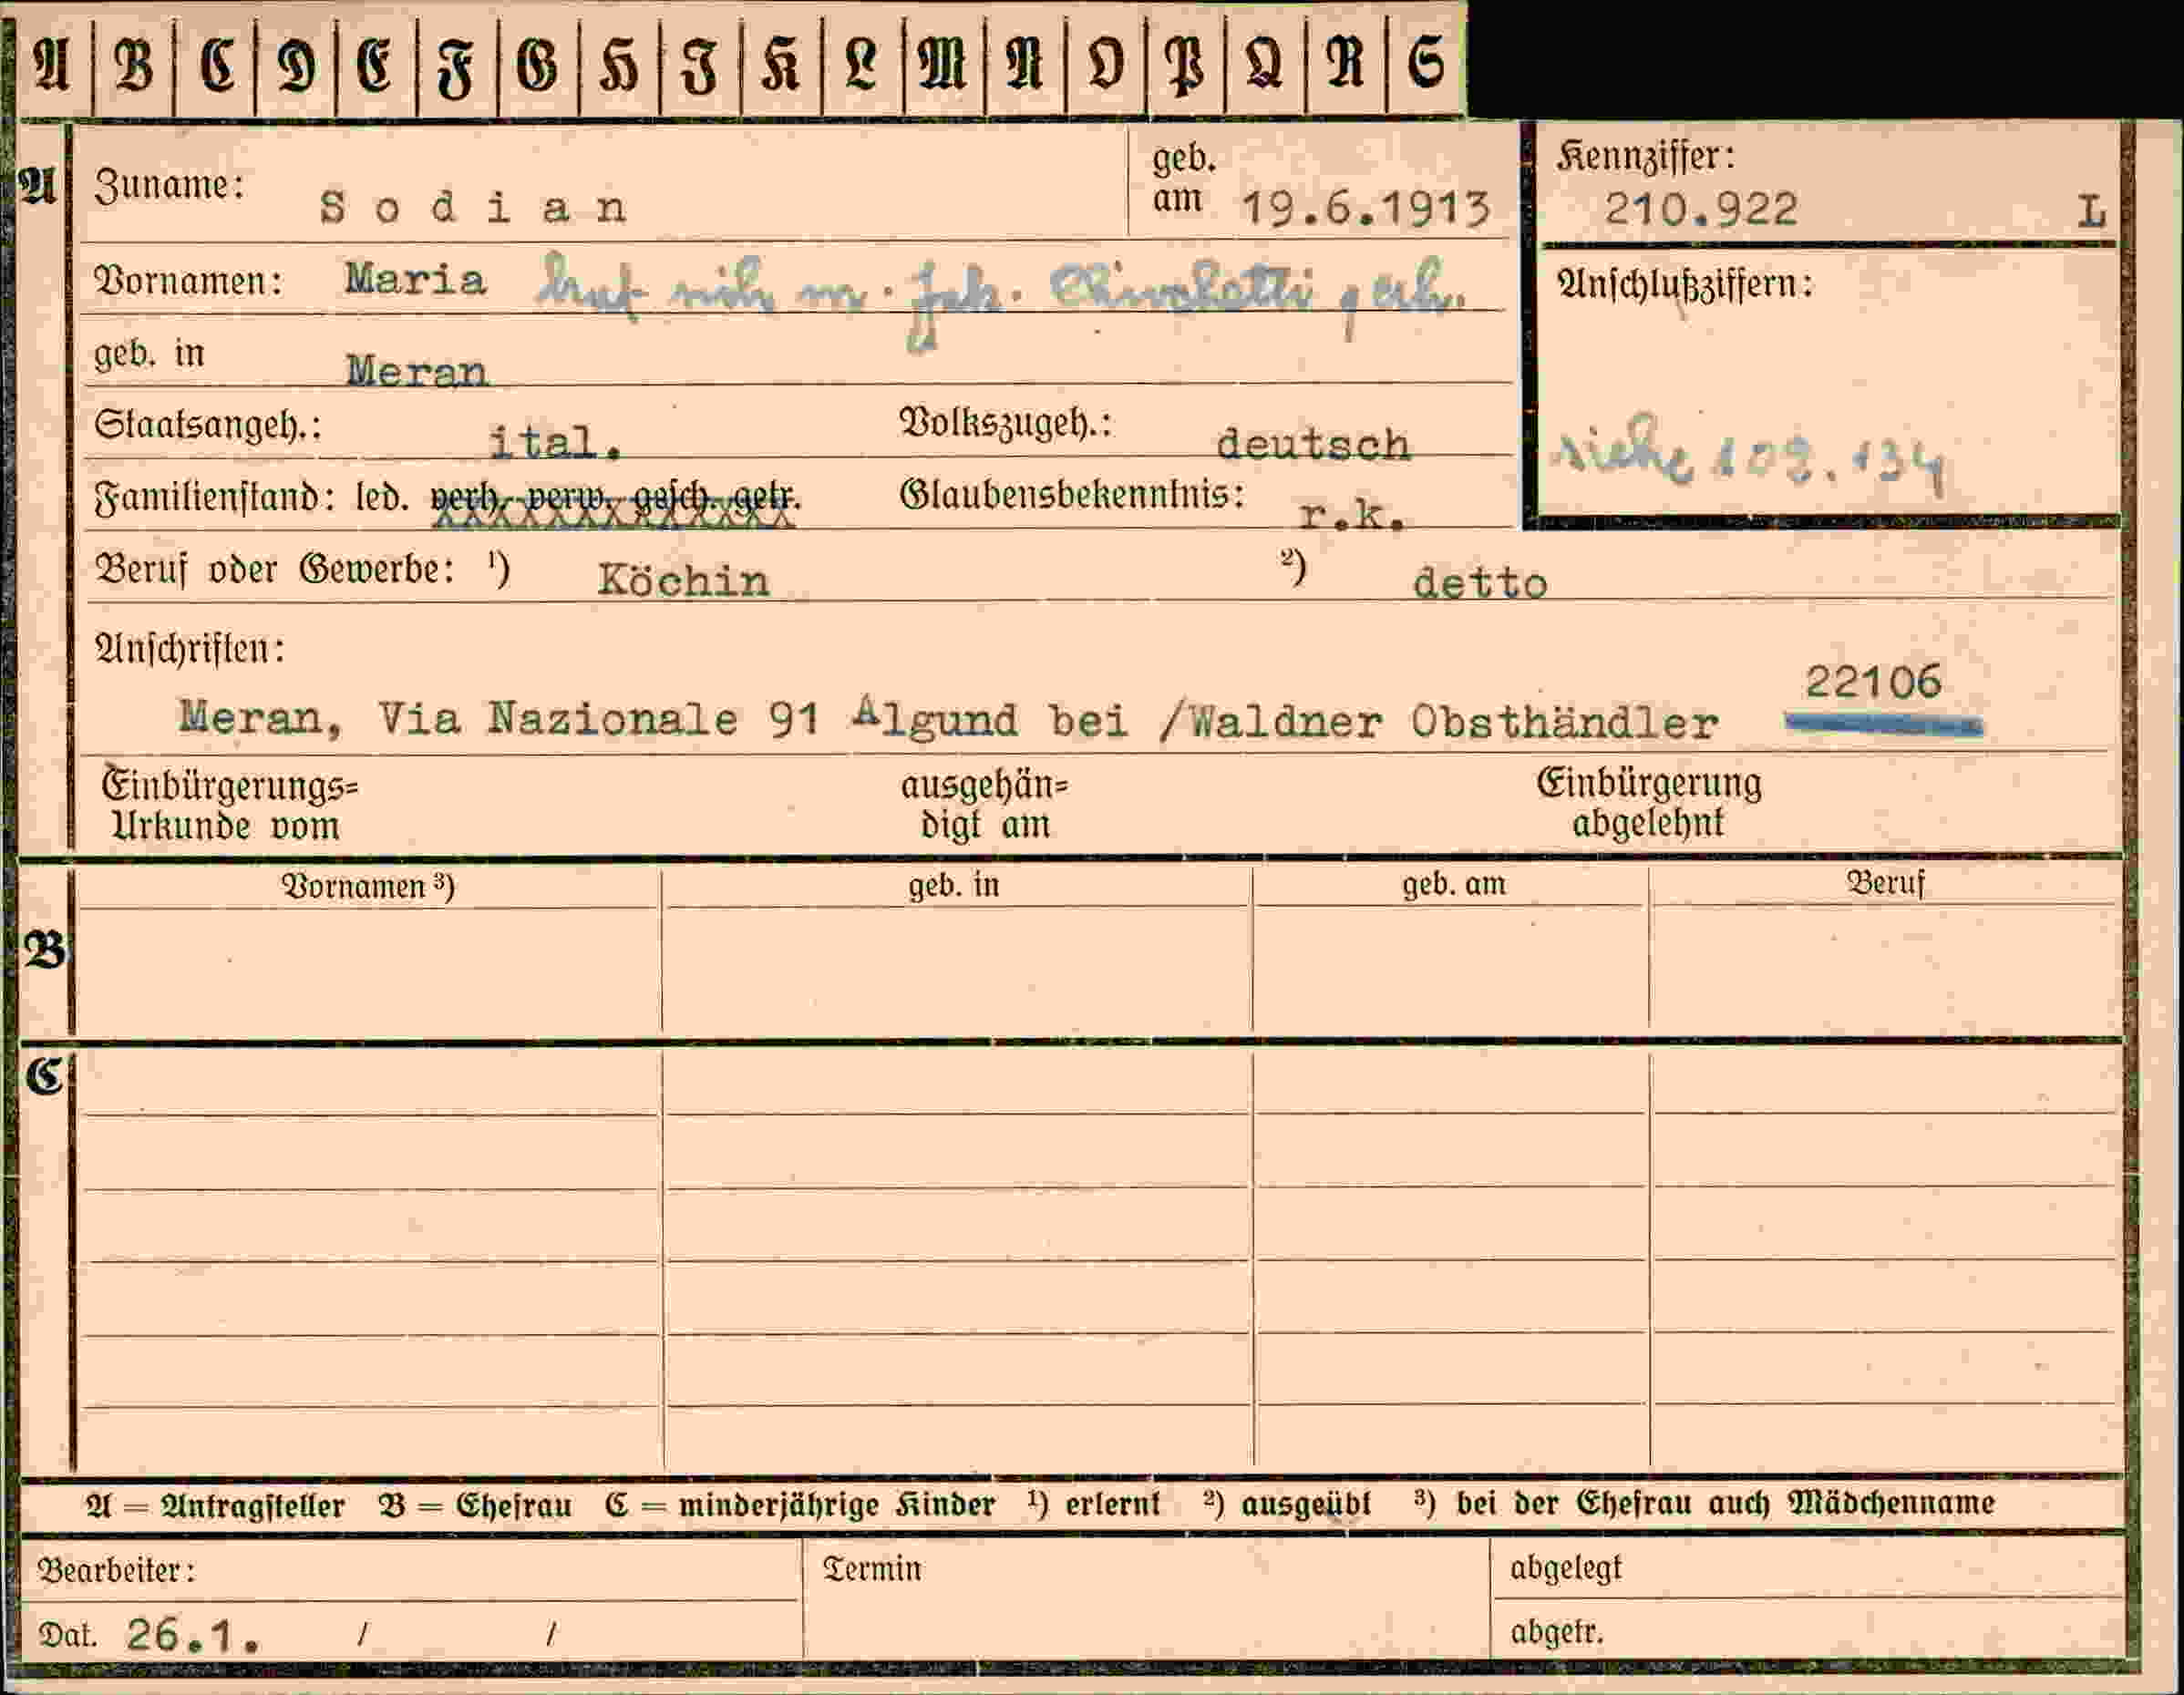 A B C D E F G H I K L M N O P Q R S
A Zuname: Sodian geb. am 19.6.1913 Kennziffer: 210.922 L
Vornamen: Maria hat sich m. Jak. verh. Anschlußziffern:
geb. in Meran
Staatsangeh.: ital. Volkszugeh.: deutsch siehe 109.134
Familienstand: led. verh. verw. gesch. getr. Glaubensbekenntnis: r.k.
Beruf oder Gewerbe: ¹) Köchin ²) detto
Anschriften:
22106
Meran, Via Nazionale 91 Algund bei /Waldner Obsthändler
Einbürgerungs= ausgehän= Einbürgerung
Urkunde vom digt am abgelehnt
Vornamen ³) geb. in geb. am Beruf
B
C
A = Antragsteller B = Ehefrau C = minderjährige Kinder ¹) erlernt ²) ausgeübt ³) bei der Ehefrau auch Mädchenname
Bearbeiter: Termin abgelegt
Dat. 26.1. / / abgetr.